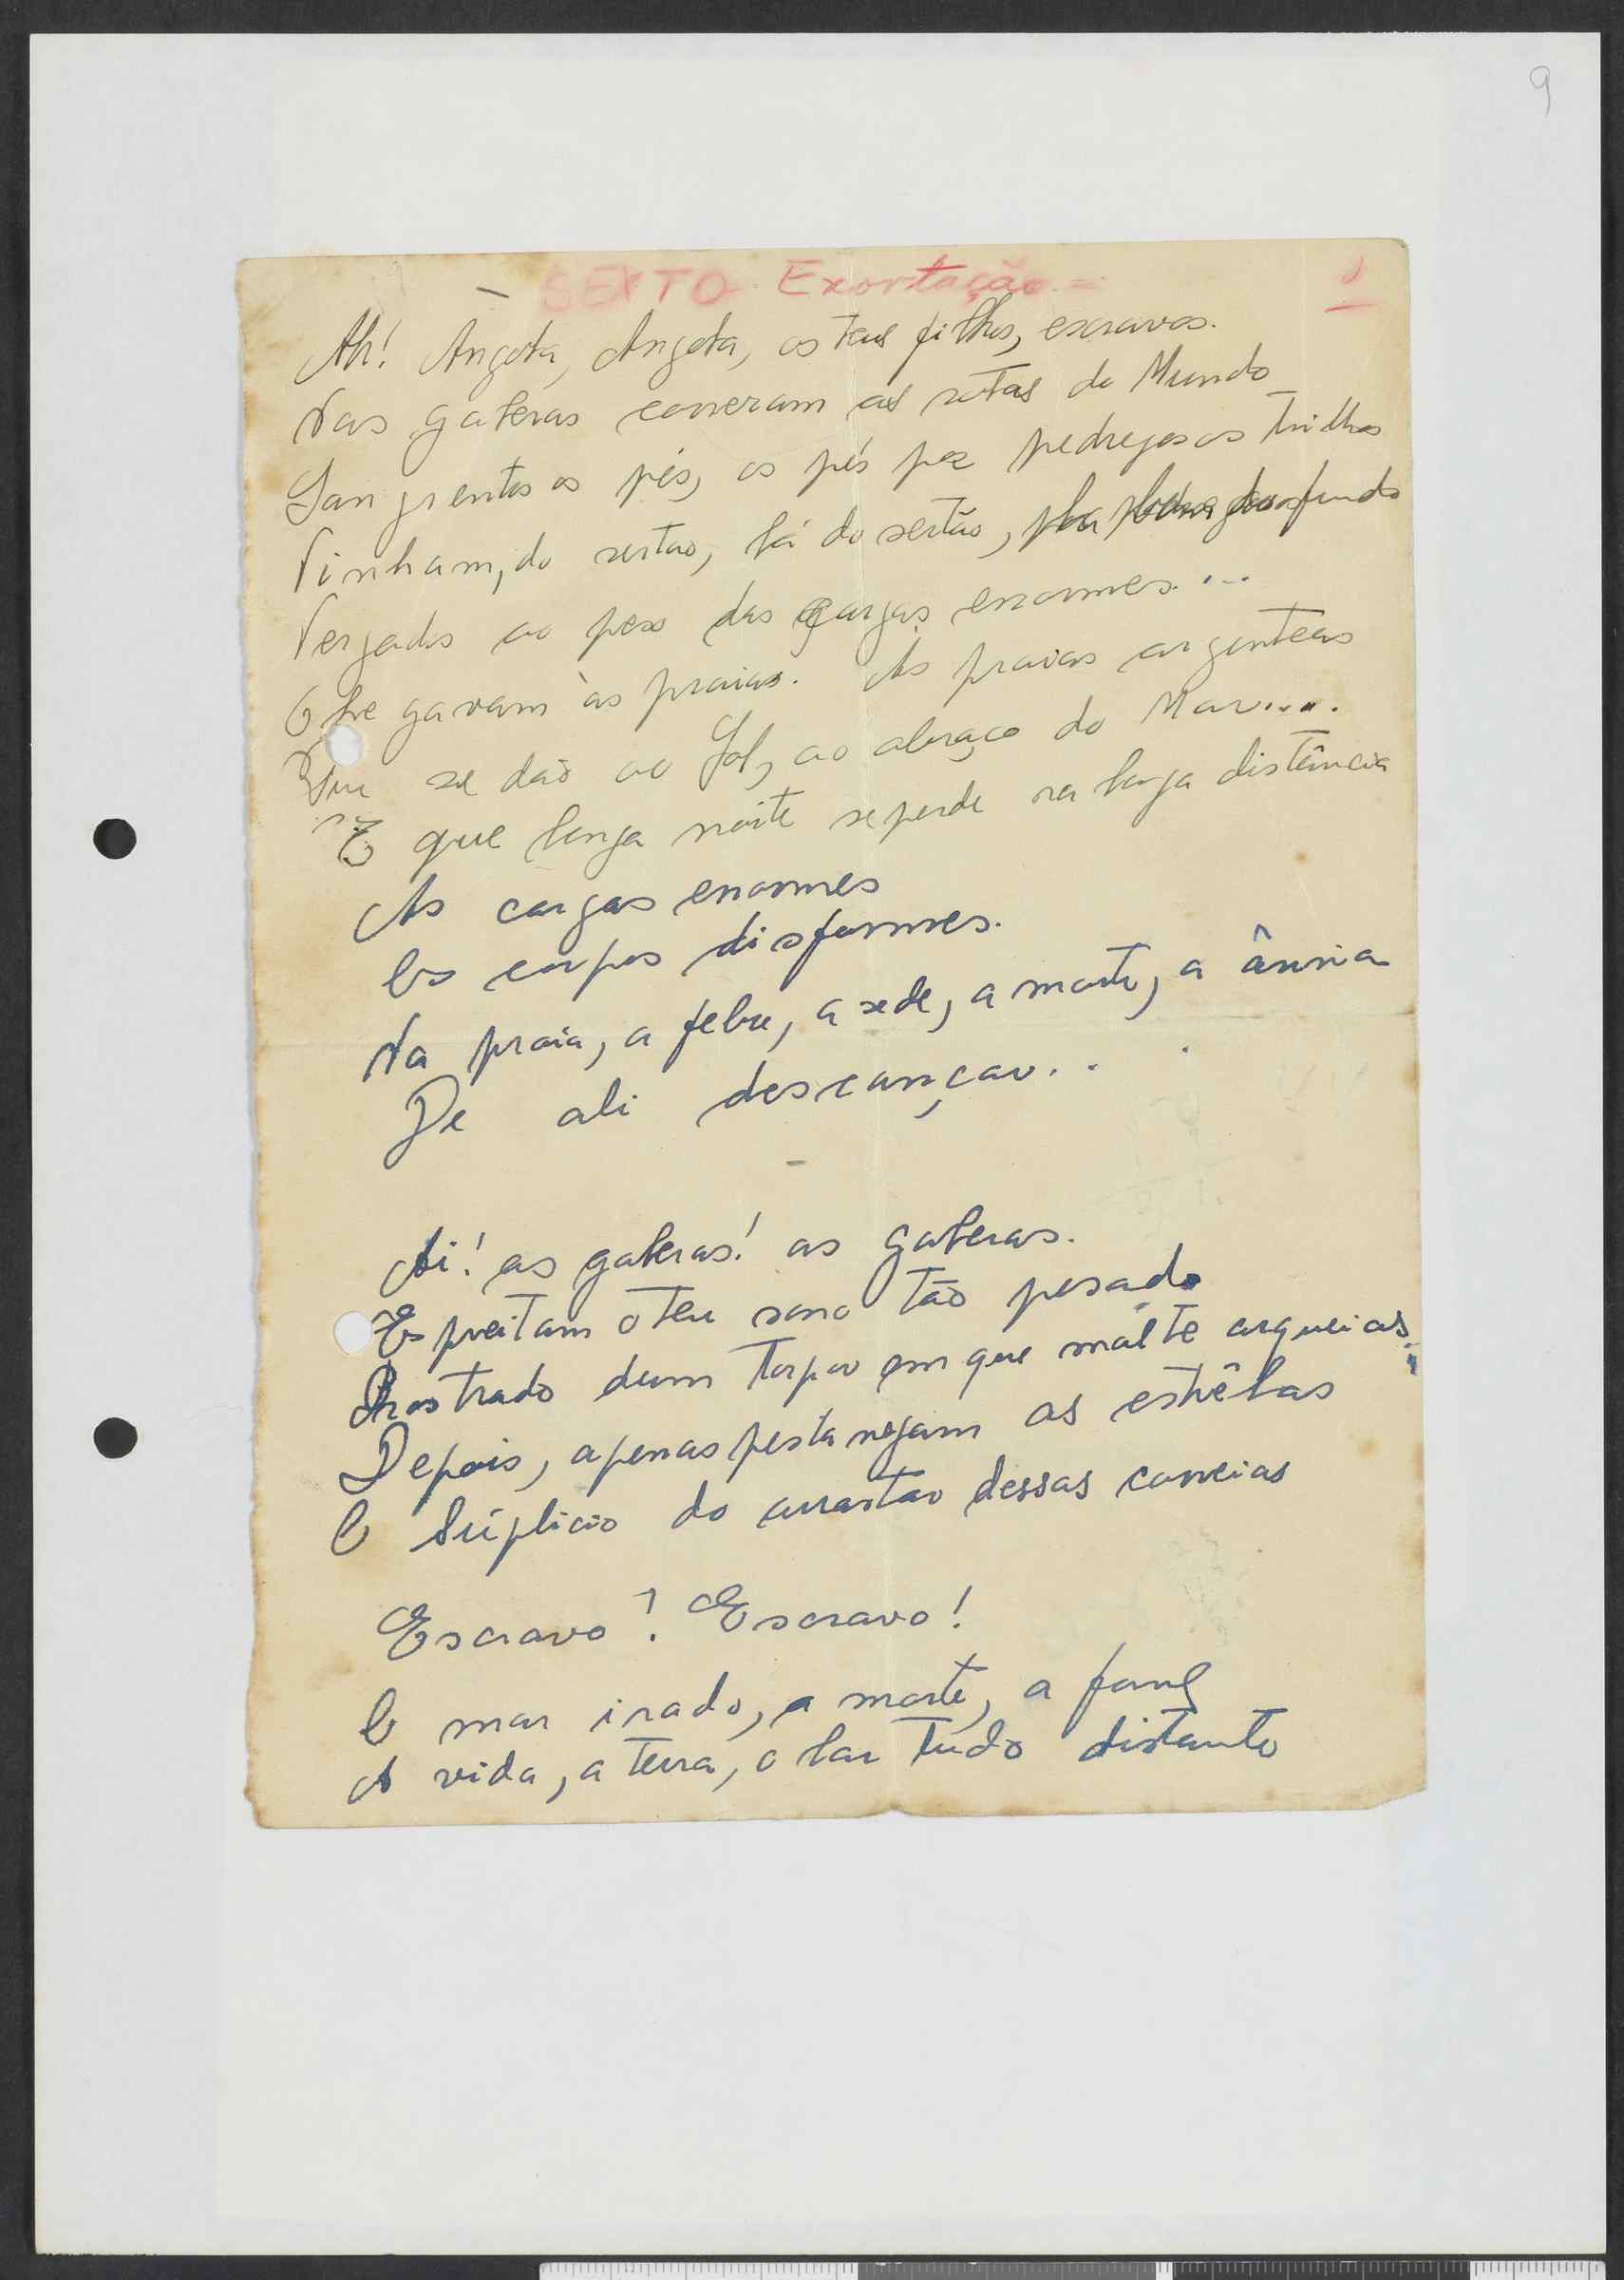 9
SEXTO Exortação =
1
Ah! Angola, Angola, os teus filhos, escravos.
Nas galeras correram as rotas do Mundo
Sangrentos os pés, os pés por pedregosos trilhos
Vinham, do sertão, lá do sertão, fundo
Vergados ao peso das cargas enormes...
Chegavam às praias. As praias argenteas
Que se dão ao Sol, ao abraço do Mar....
E que longa noite se perde na longa distância
As cargas enormes
Os corpos disformes.
Na praia, a febre, a sede, a morte, a ânsia
De ali descançar...
Ai! as galeras! as galeras.
Espreitam o teu sono tão pesado
Prostrado dum torpor em que mal te arqueias
Depois, apenas pestanejam as estrêlas
O Súplicio do arrastar dessas correias
Escravo! Escravo!
O mar irado, a morte, a fome
A vida, a terra, o lar tudo distante